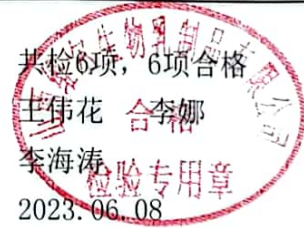 共检6项，6项合格
王伟花 李娜
李海涛
2023.06.08
生物乳制品有限公司
合格
检验专用章